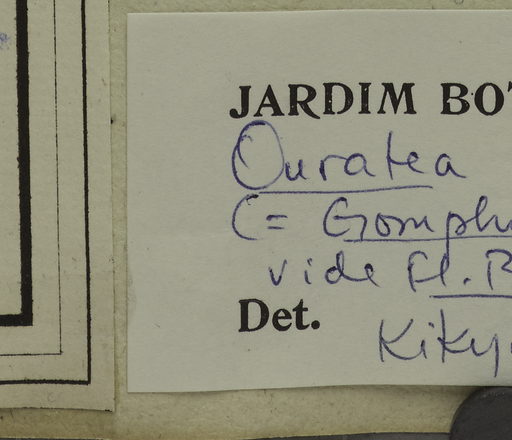 JARDIM BO
Ouratea
(= Gomph
vide Fl.
Det.
Kiky